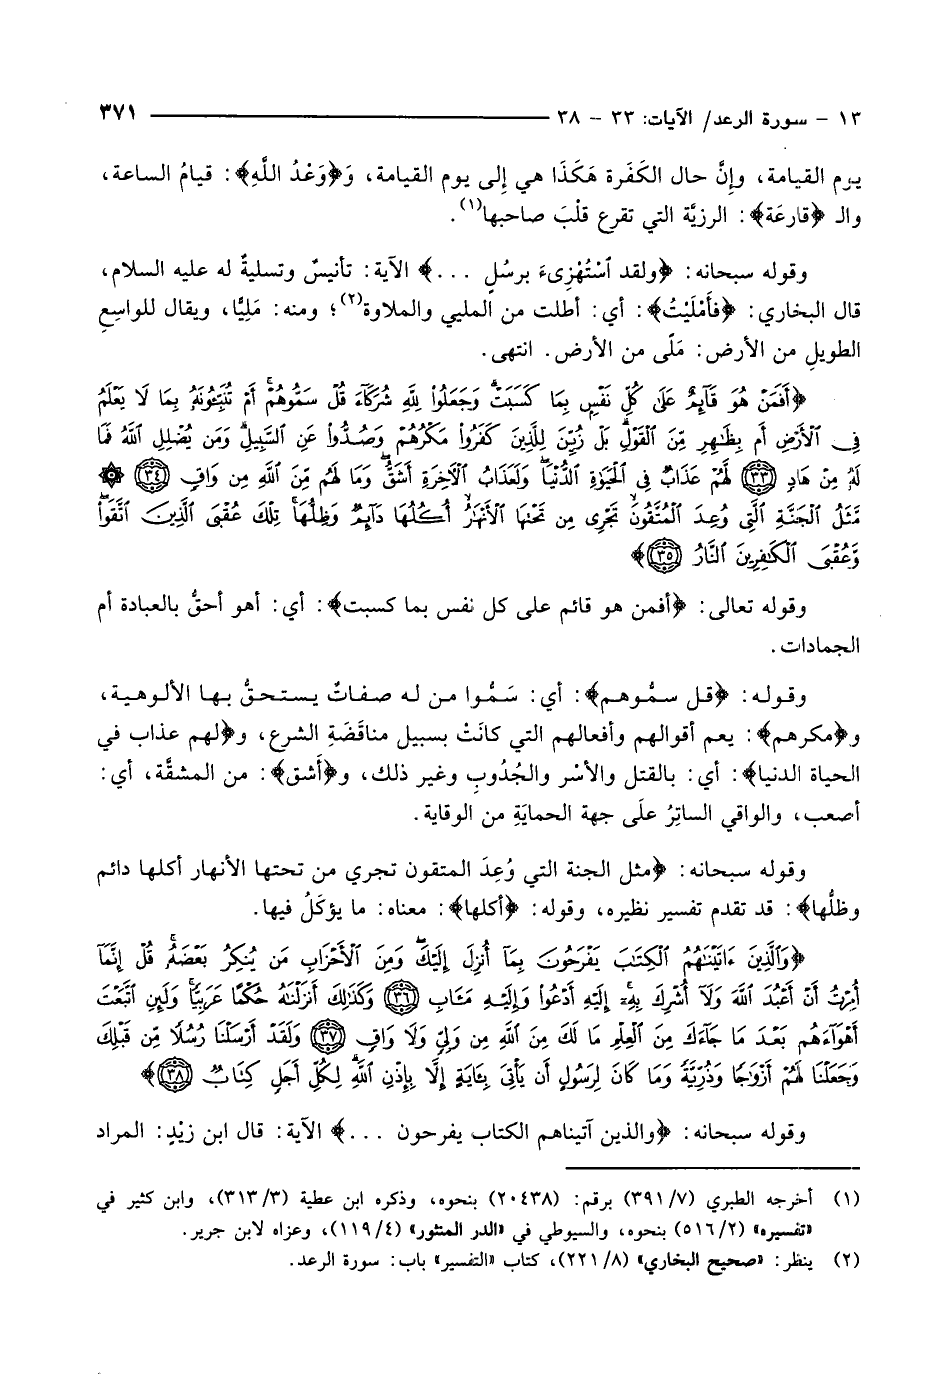 ١٣ - سورة الرعد/ الآيات: ٣٣ - ٣٨ ٣٧١
يوم القيامة، وإنَّ حال الكَفَرة هَكَذَا هي إِلى يوم القيامة، وَ﴿وَعْدُ اللَّهِ﴾: قيامُ الساعة،
والـ ﴿قارعَة﴾: الرزيَّة التي تقرع قلْبَ صاحبها(١).
وقوله سبحانه: ﴿ولقد اسْتُهْزِىءَ برسُلٍ ...﴾ الآية: تأنيسٌ وتسليةٌ له عليه السلام،
قال البخاري: ﴿فأَمْلَيْتُ﴾: أي: أطلت من المليي والملاوة(٢)؛ ومنه: مَلِيًّا، ويقال للواسِعِ
الطويلِ من الأرض: مَلًى من الأرض. انتهى.
﴿أَفَمَنْ هُوَ قَآئِمٌ عَلَىٰ كُلِّ نَفْسٍ بِمَا كَسَبَتْ وَجَعَلُواْ لِلَّهِ شُرَكَآءَ قُلْ سَمُّوهُمْ أَمْ تُنَبِّـُٔونَهُۥ بِمَا لَا يَعْلَمُ
فِى ٱلْأَرْضِ أَم بِظَـٰهِرٍ مِّنَ ٱلْقَوْلِ بَلْ زُيِّنَ لِلَّذِينَ كَفَرُواْ مَكْرُهُمْ وَصُدُّواْ عَنِ ٱلسَّبِيلِ وَمَن يُضْلِلِ ٱللَّهُ فَمَا
لَهُۥ مِنْ هَادٍ (٣٣) لَّهُمْ عَذَابٌ فِى ٱلْحَيَوٰةِ ٱلدُّنْيَا وَلَعَذَابُ ٱلْأَخِرَةِ أَشَقُّ وَمَا لَهُم مِّنَ ٱللَّهِ مِن وَاقٍ (٣٤) ۞
مَّثَلُ ٱلْجَنَّةِ ٱلَّتِى وُعِدَ ٱلْمُتَّقُونَ تَجْرِى مِن تَحْتِهَا ٱلْأَنْهَـٰرُ أُكُلُهَا دَآئِمٌ وَظِلُّهَا تِلْكَ عُقْبَى ٱلَّذِينَ ٱتَّقَواْ
وَّعُقْبَى ٱلْكَـٰفِرِينَ ٱلنَّارُ (٣٥)﴾
وقوله تعالى: ﴿أفمن هو قائم على كل نفس بما كسبت﴾: أي: أهو أحقُّ بالعبادة أم
الجمادات.
وقوله: ﴿قل سمُّوهم﴾: أي: سَمُّوا من له صفاتٌ يستحقُّ بها الألوهية،
و﴿مكرهم﴾: يعم أقوالهم وأفعالهم التي كانَتْ بسبيل مناقَضَةِ الشرع، و﴿لهم عذاب في
الحياة الدنيا﴾: أي: بالقتل والأسْر والجُدُوبِ وغير ذلك، و﴿أَشق﴾: من المشقَّة، أي:
أصعب، والواقي الساتِرُ علَى جهة الحمايَةِ من الوقاية.
وقوله سبحانه: ﴿مثل الجنة التي وُعِدَ المتقون تجري من تحتها الأنهار أكلها دائم
وظلُّها﴾: قد تقدم تفسير نظيره، وقوله: ﴿أكلها﴾: معناه: ما يؤكَلُ فيها.
﴿وَٱلَّذِينَ ءَاتَيْنَـٰهُمُ ٱلْكِتَـٰبَ يَفْرَحُونَ بِمَآ أُنزِلَ إِلَيْكَ وَمِنَ ٱلْأَحْزَابِ مَن يُنكِرُ بَعْضَهُۥ قُلْ إِنَّمَآ
أُمِرْتُ أَنْ أَعْبُدَ ٱللَّهَ وَلَآ أُشْرِكَ بِهِۦٓ إِلَيْهِ أَدْعُواْ وَإِلَيْهِ مَـَٔابِ (٣٦) وَكَذَٰلِكَ أَنزَلْنَـٰهُ حُكْمًا عَرَبِيًّا وَلَئِنِ ٱتَّبَعْتَ
أَهْوَآءَهُم بَعْدَ مَا جَآءَكَ مِنَ ٱلْعِلْمِ مَا لَكَ مِنَ ٱللَّهِ مِن وَلِىٍّ وَلَا وَاقٍ (٣٧) وَلَقَدْ أَرْسَلْنَا رُسُلًا مِّن قَبْلِكَ
وَجَعَلْنَا لَهُمْ أَزْوَٰجًا وَذُرِّيَّةً وَمَا كَانَ لِرَسُولٍ أَن يَأْتِىَ بِـَٔايَةٍ إِلَّا بِإِذْنِ ٱللَّهِ لِكُلِّ أَجَلٍ كِتَابٌ (٣٨)﴾
وقوله سبحانه: ﴿والذين آتيناهم الكتاب يفرحون ...﴾ الآية: قال ابن زيْدٍ: المراد
(١) أخرجه الطبري (٣٩١/٧) برقم: (٢٠٤٣٨) بنحوه، وذكره ابن عطية (٣١٣/٣)، وابن كثير في
«تفسيره» (٥١٦/٢) بنحوه، والسيوطي في «الدر المنثور» (١١٩/٤)، وعزاه لابن جرير.
(٢) ينظر: «صحيح البخاري» (٢٢١/٨)، كتاب «التفسير» باب: سورة الرعد.